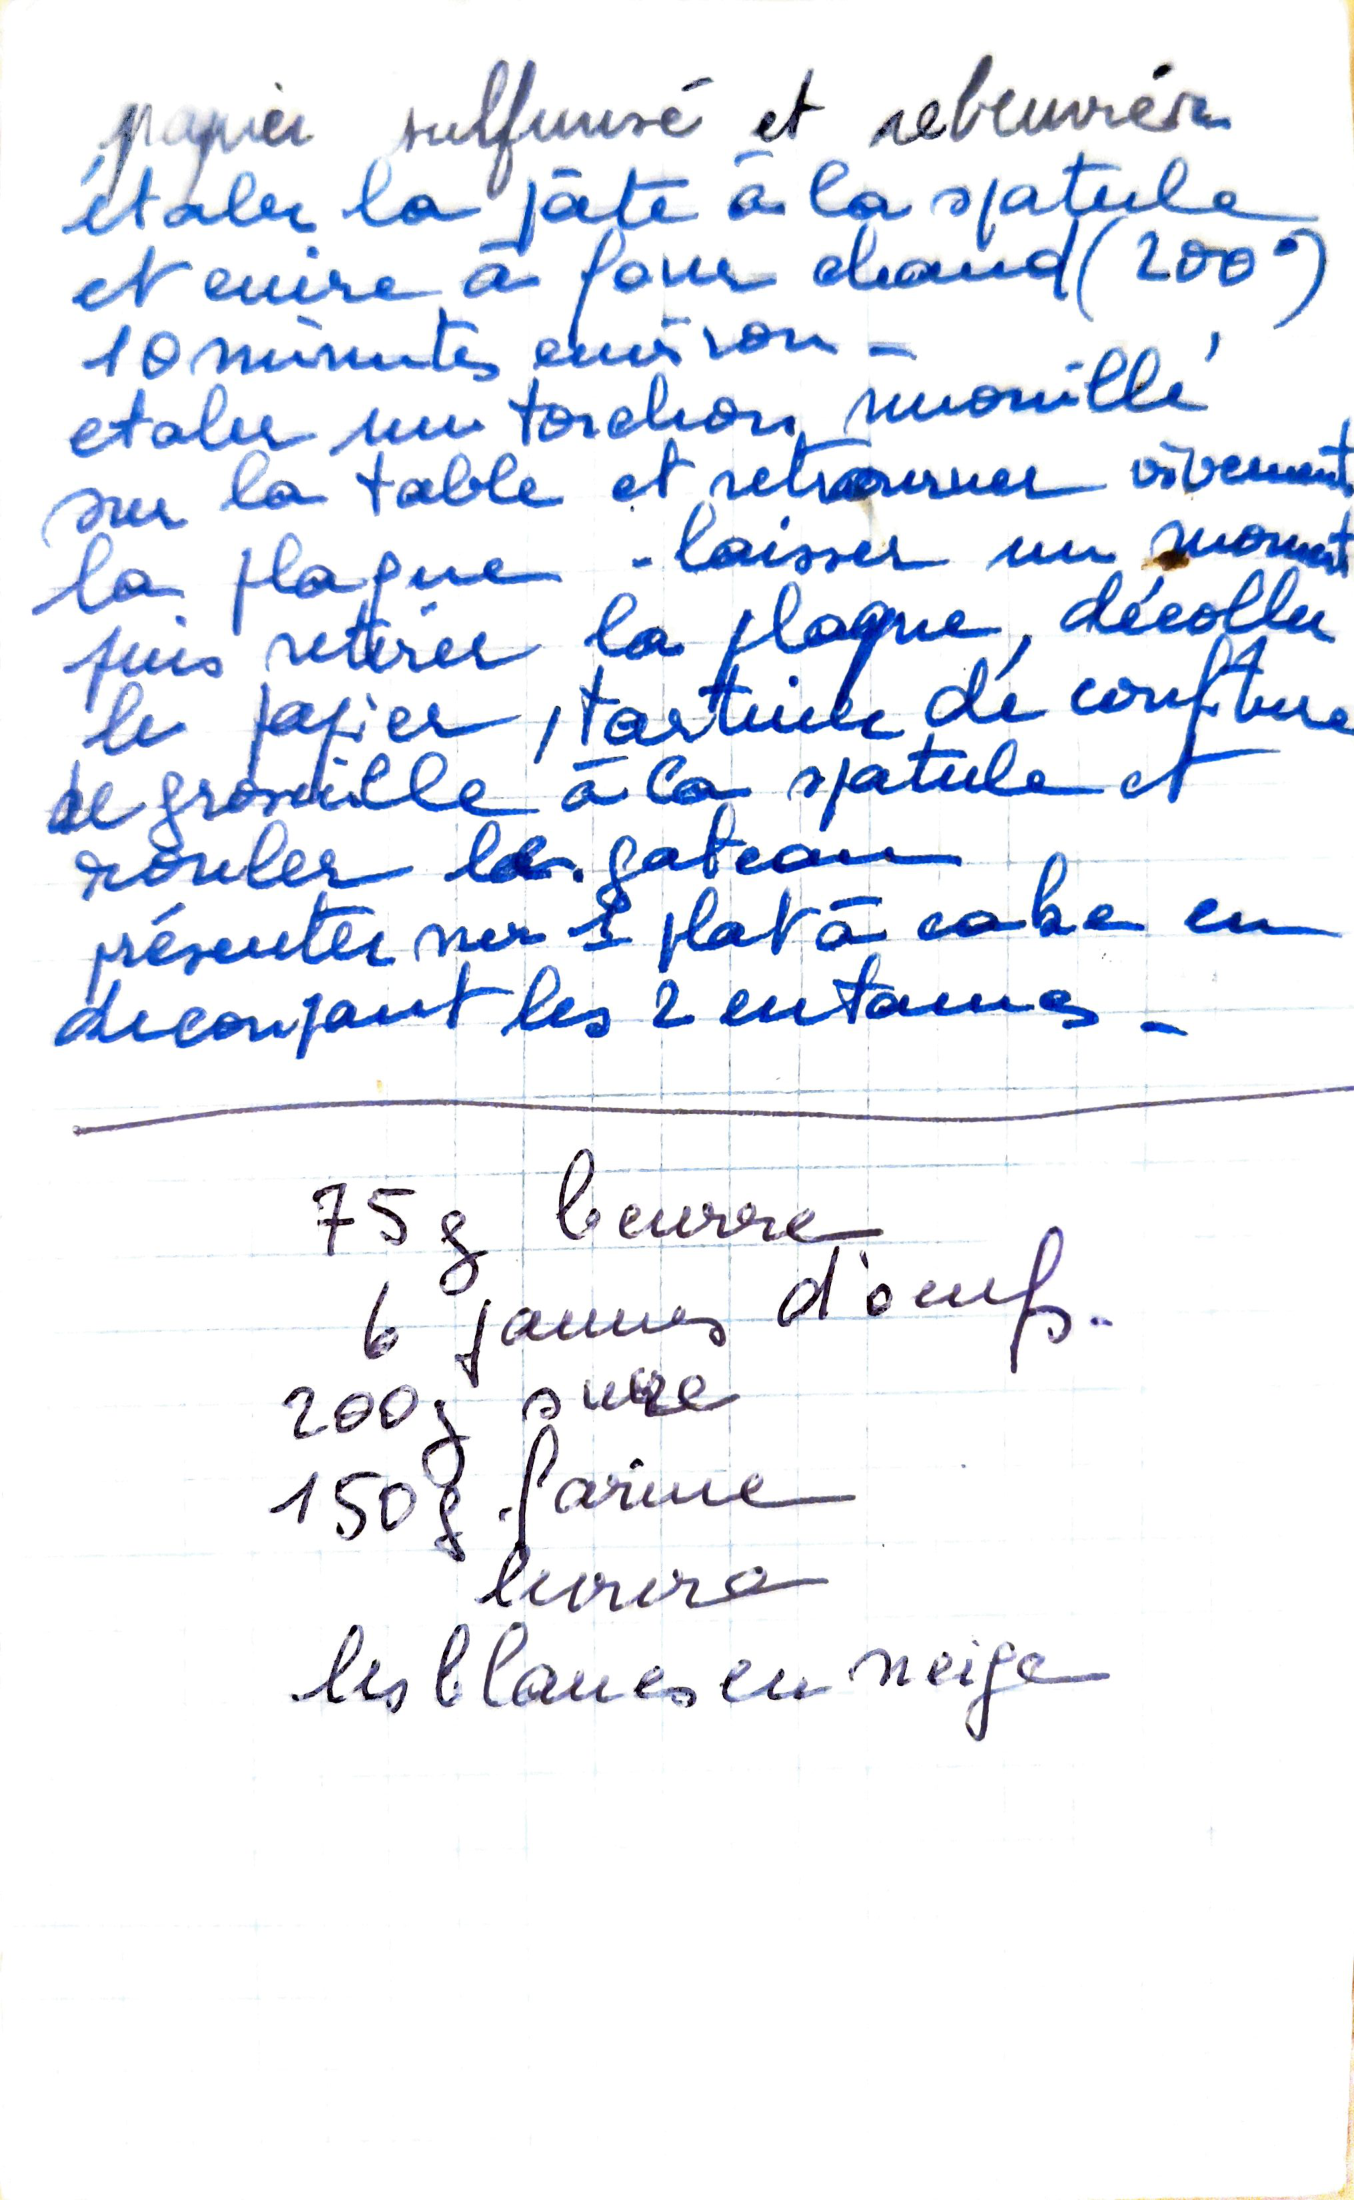 papier sulfurisé et rebeurrér
étaler la pâte à la spatule
et cuire à four chaud (200°)
10 minutes environ -
etaler un torchon mouillé
sur la table et retrourner vivement
la plaque - laisser un moment
puis retirer la plaque, décoller
le papier, tartiner de confiture
de groseille à la spatule et
rouler le gateau
présenter sur 1 plat à cake en
decoupant les 2 entames -
75g beurre
6 jaunes d'oeufs.
200g sucre
150g farine
levure
les blancs en neige